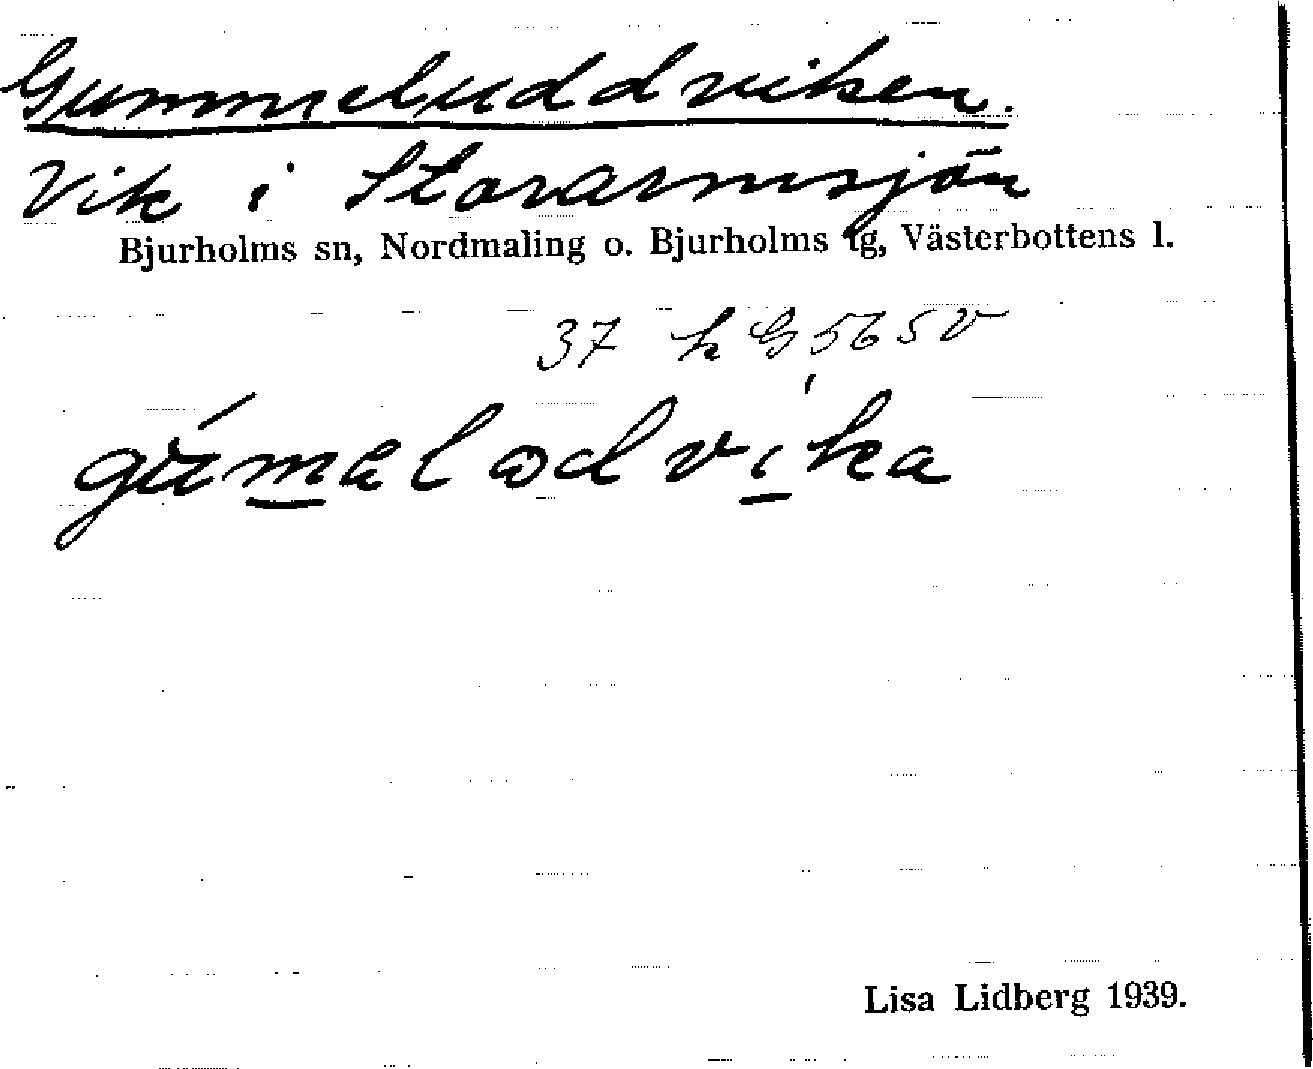 Gummeluddviken.
Vik i Storarmsjön
Bjurholms sn, Nordmaling o. Bjurholms tg, Västerbottens l.
37 k G 565 v
Lisa Lidberg 1939.